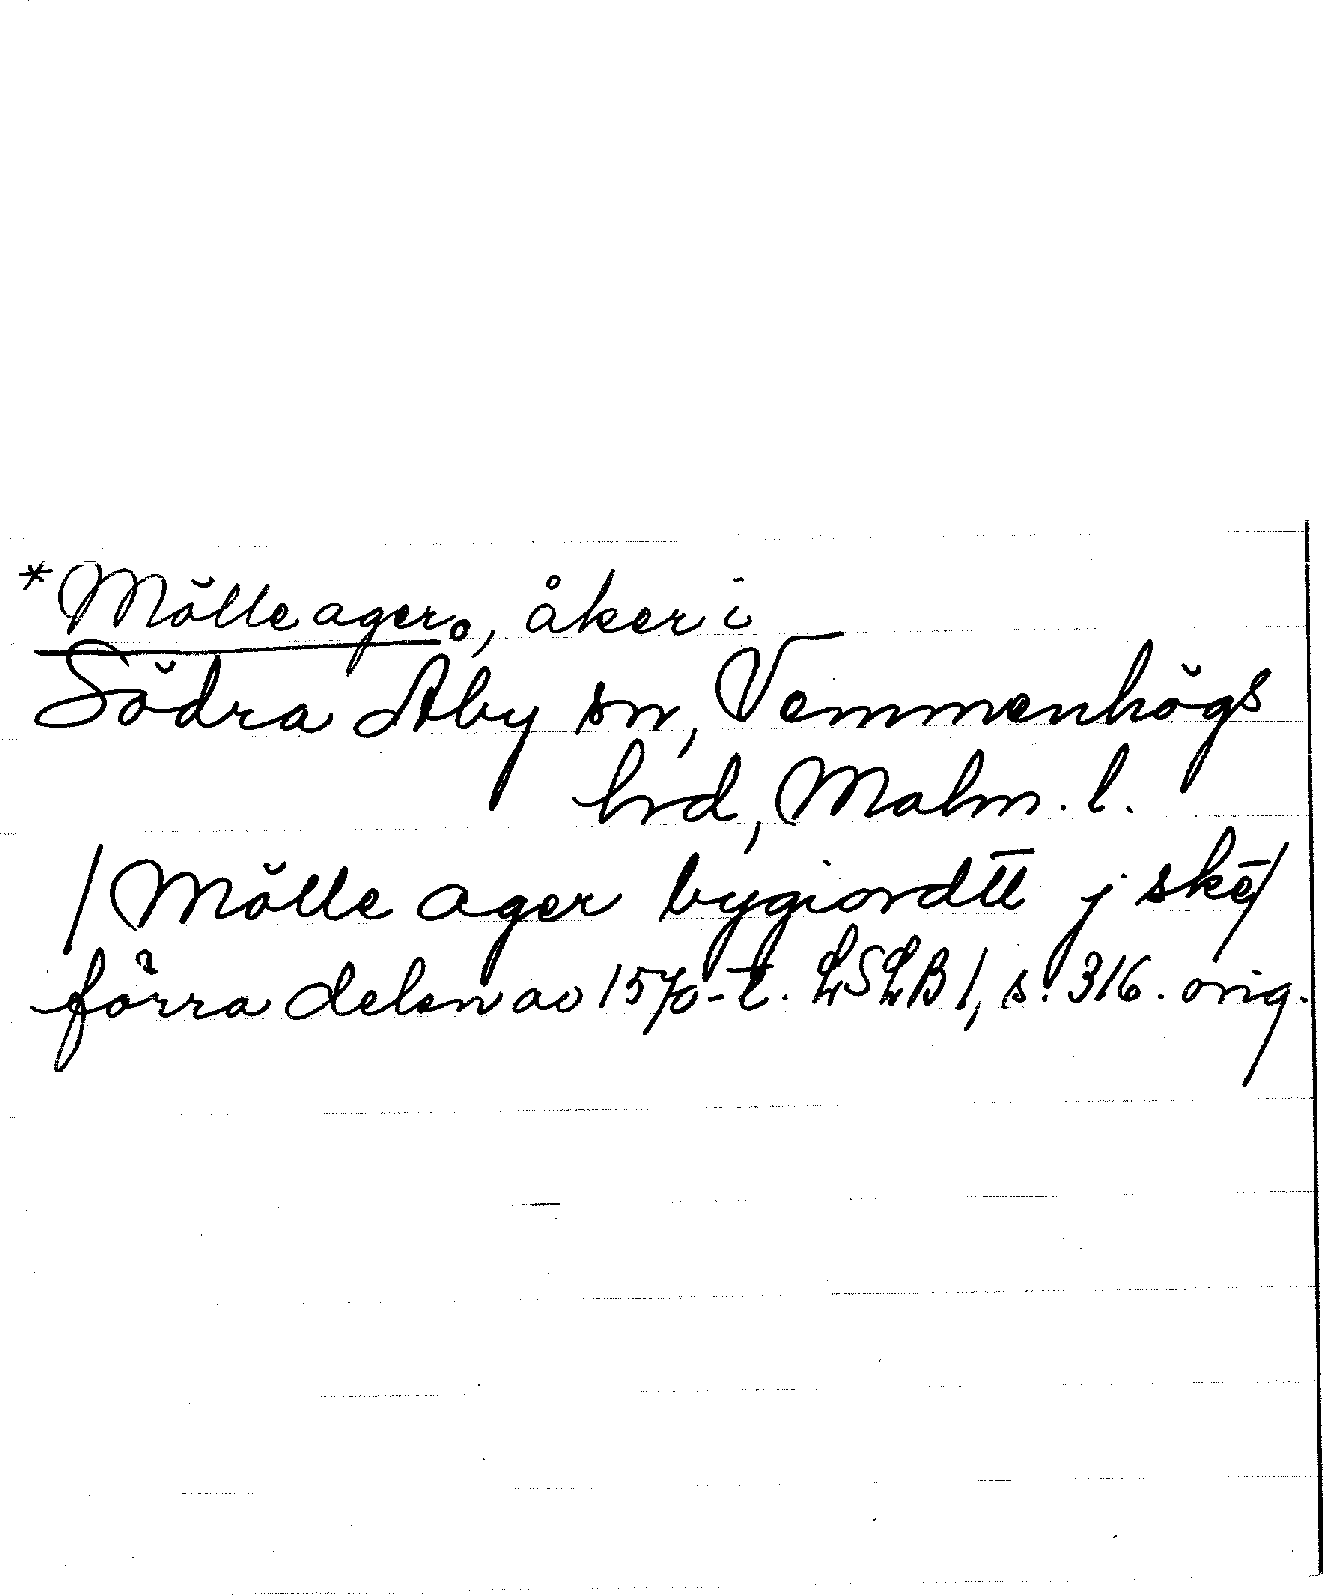 *Mölle ager, åker i
Södra Åby sn, Vemmenhögs
hrd, Malm. l.
/Mölle ager bygiordtt j skē/
förra delen av 1570-t. LSLB 1, s. 316. orig.